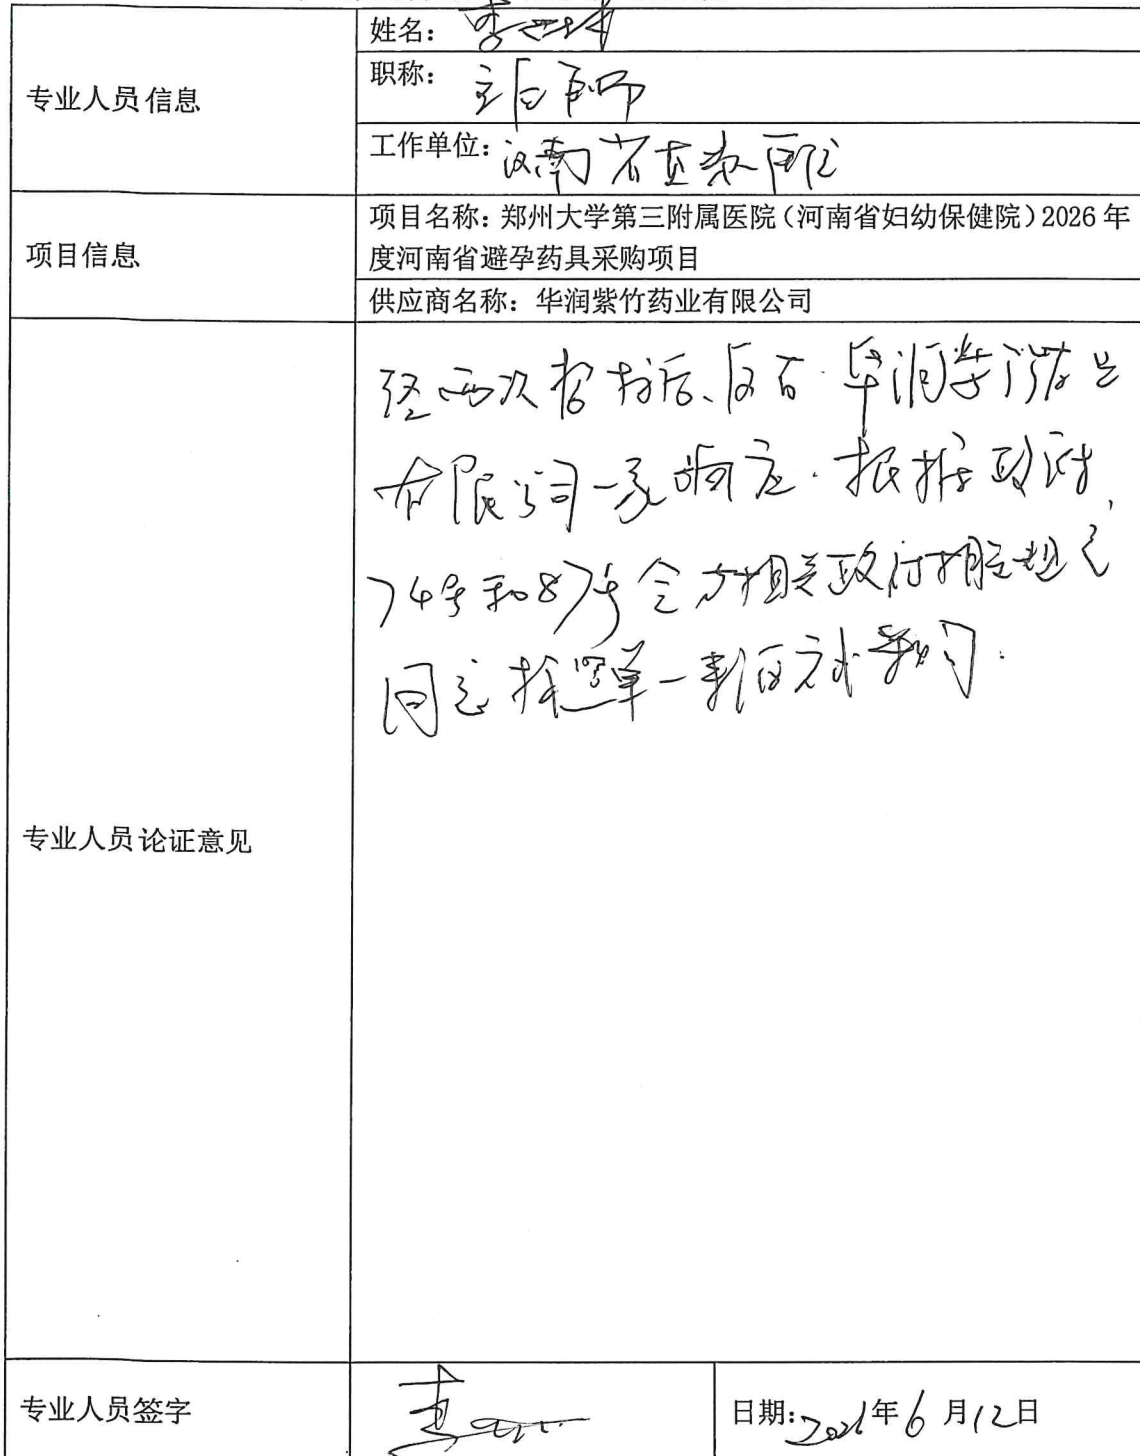 专业人员信息
姓名：李
职称：主任医师
工作单位：河南省直三院
项目信息
项目名称：郑州大学第三附属医院（河南省妇幼保健院）2026 年
度河南省避孕药具采购项目
供应商名称：华润紫竹药业有限公司
专业人员论证意见
经两次招标后、仅有华润紫竹药业
有限公司一家响应. 根据政府
74号和87号令 相关政府 规定
同意 单一来源方式采购.
专业人员签字
李
日期：2026年6月12日